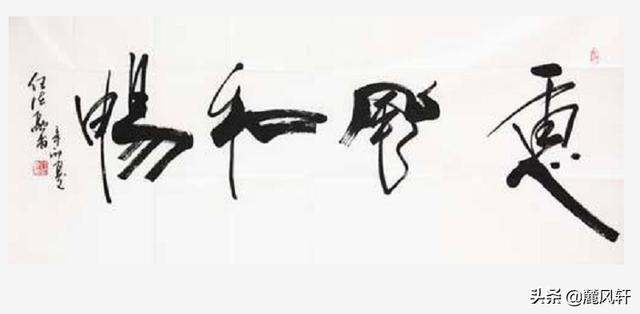 惠風和暢
头条 @麓风轩